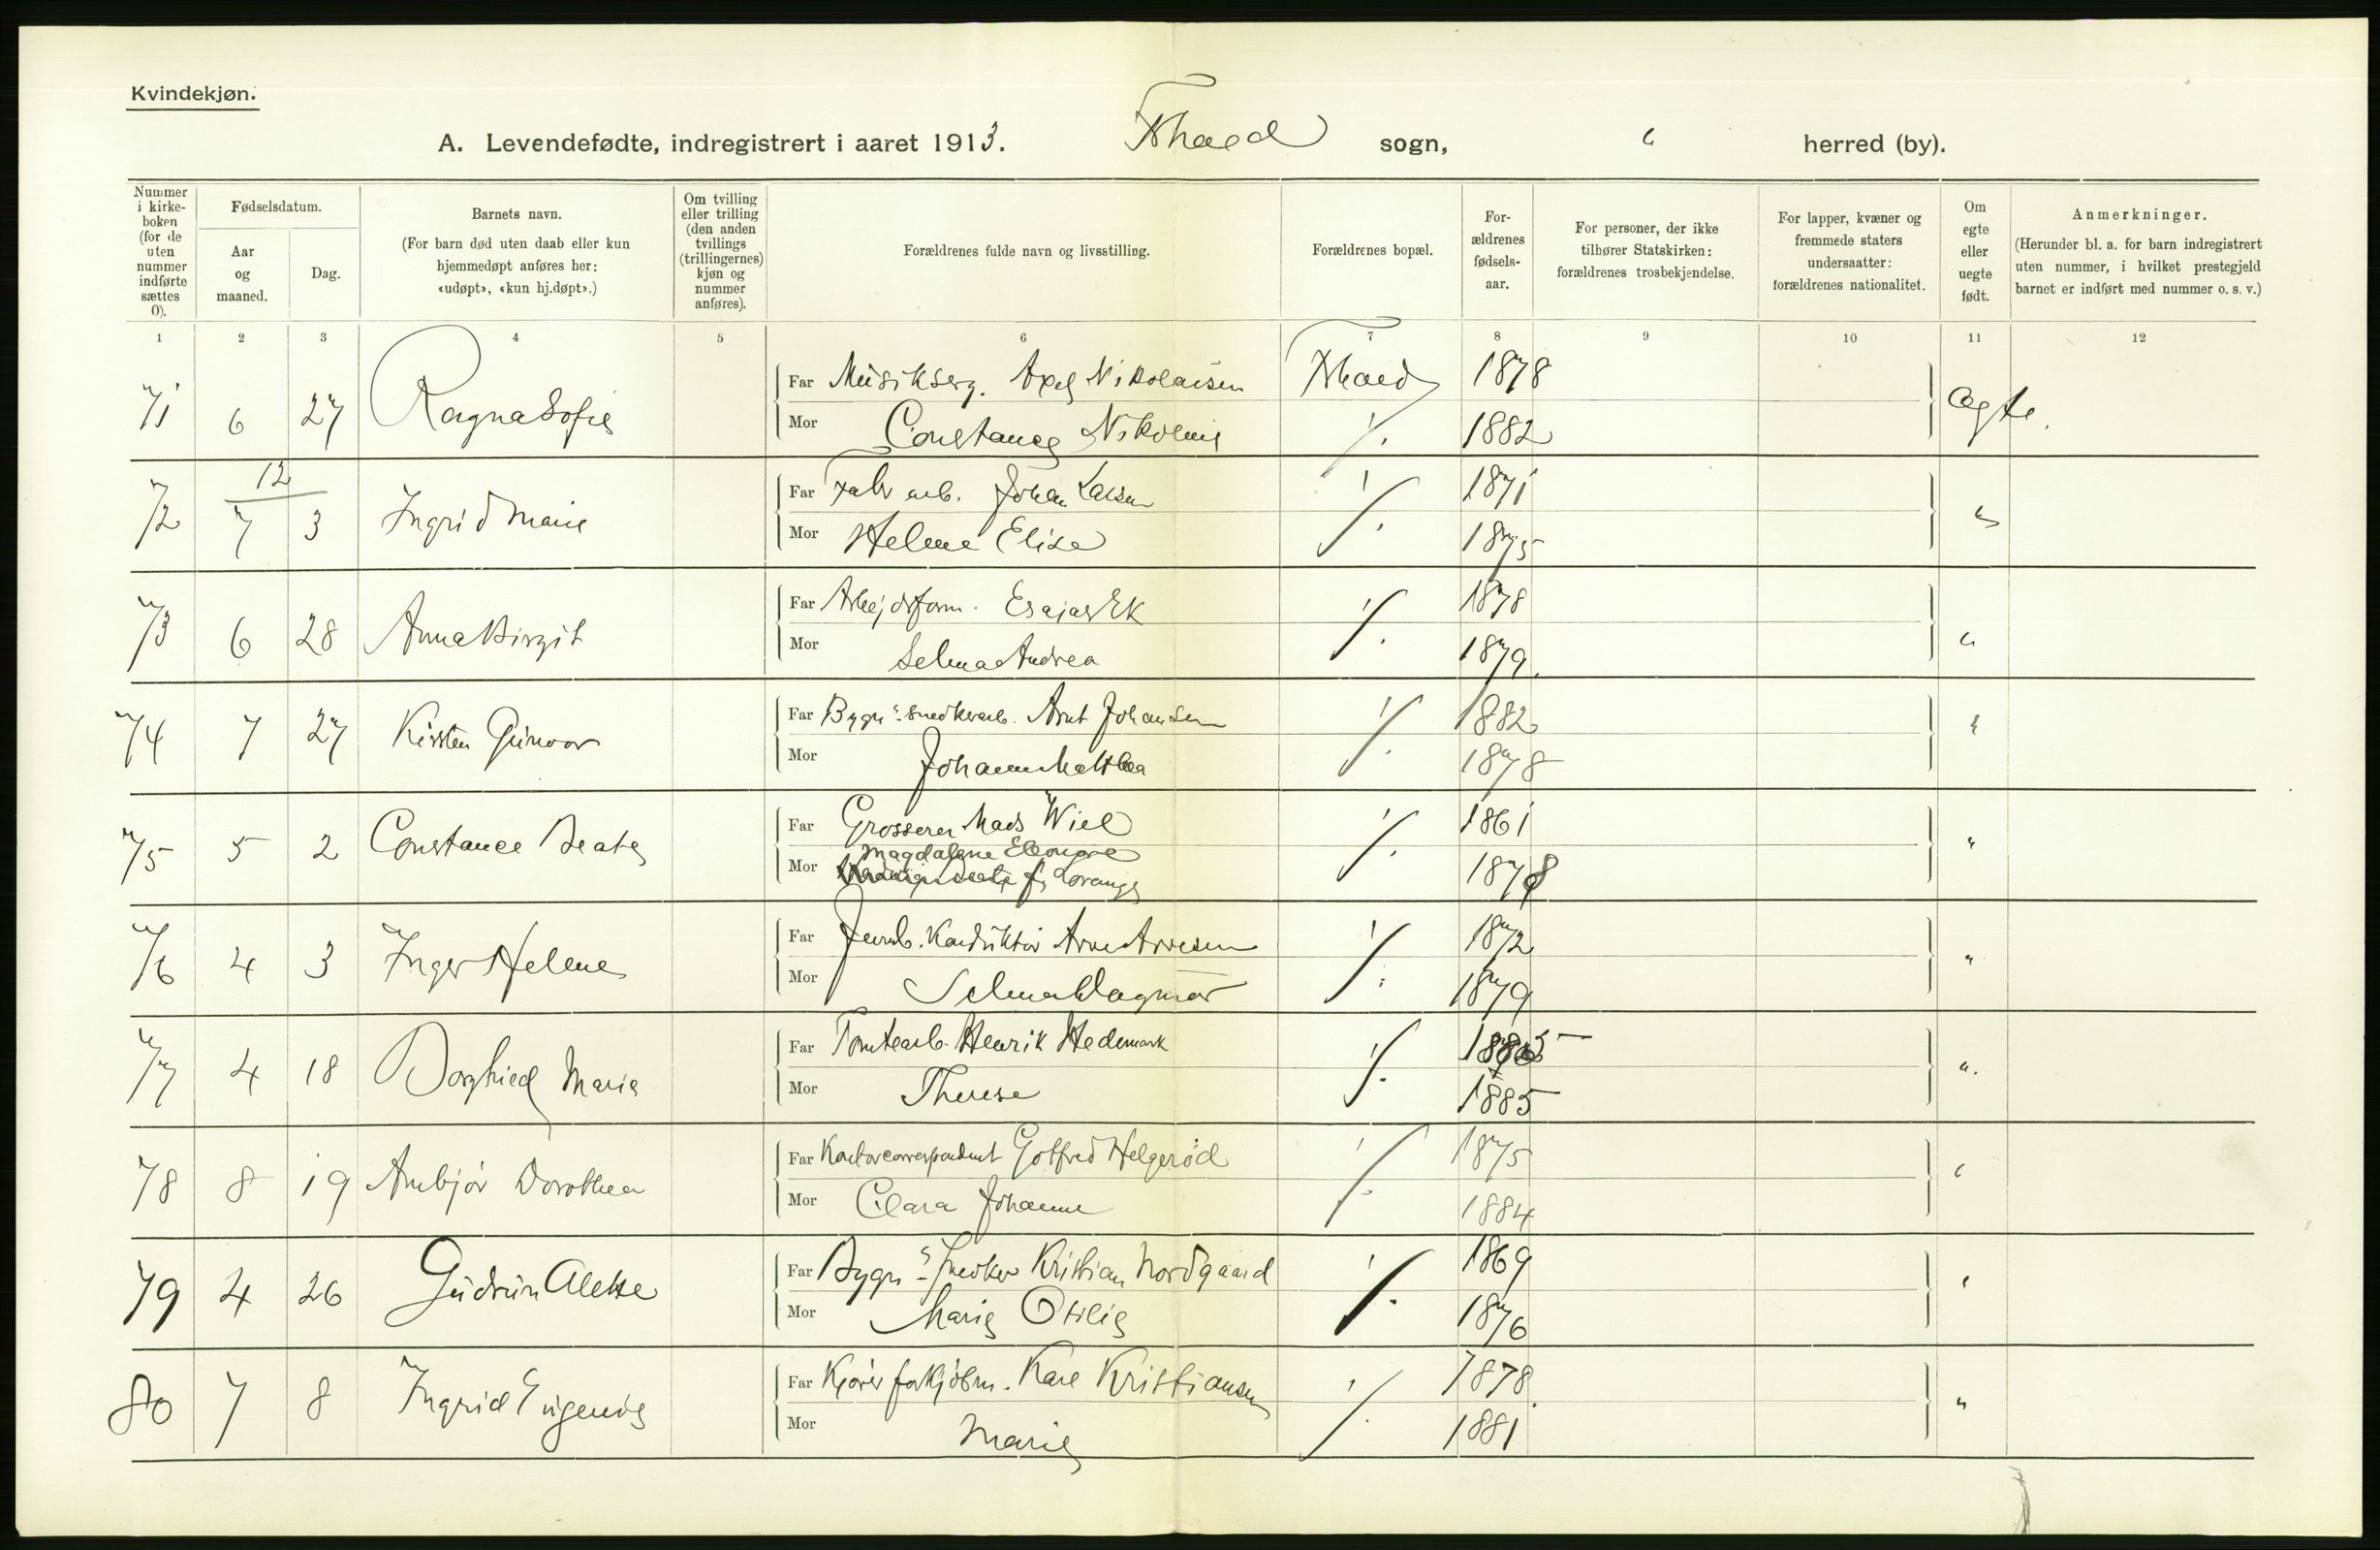 Kvindekjøn.
A. Levendefødte, indregistrert i aaret 1913. Frhald sogn, " herred (by).
Nummer i kirke-boken (for de uten nummer indførte sættes 0).
Fødselsdatum.
Aar og maaned.
Dag.
Barnets navn.
(For barn død uten daab eller kun hjemmedøpt anføres her: «udøpt», «kun hj.døpt».)
Om tvilling eller trilling (den anden tvillings (trillingernes) kjøn og nummer anføres).
Forældrenes fulde navn og livsstilling.
Forældrenes bopæl.
For-ældrenes fødsels-aar.
For personer, der ikke tilhører Statskirken: forældrenes trosbekjendelse.
For lapper, kvæner og fremmede staters undersaatter: forældrenes nationalitet.
Om egte eller uegte født.
Anmerkninger.
(Herunder bl. a. for barn indregistrert uten nummer, i hvilket prestegjeld barnet er indført med nummer o. s. v.)
1 2 3 4 5 6 7 8 9 10 11 12
71 6 27 Ragna Sofie Far Musikserg. Axel Nikolaisen Frhald 1878 Ægte.
Mor Constance Nikoline 1882
72 12/7 3 Ingrid Marie Far Fabr arb. Johan Larsen 1871 "
Mor Helene Elise 1875
73 6 28 Anna Birgit Far Arbejdsform. Esajas Ek 1878 "
Mor Selma Andrea 1879.
74 7 27 Kirsten Gunvor Far Bygn.s snedkerarb. Arnt Johansen 1882 "
Mor Johanne Mathea 1878
75 5 2 Constance Beate Far Grosserer Mads Wiel 1861 "
Magdalene Eleonore
Mor f. Lorange 1878
76 4 3 Inger Helene Far Jernb. Konduktør Arne Arnesen 1872 "
Mor Selma Dagmar 1879
77 4 18 Borghild Marie Far Tomtearb. Henrik Hedemark ".
Mor Therese 1885
78 8 19 Anbjør Dorothea Far Kontorcorrespondent Gotfred Helgerød 1875 "
Mor Clara Johanne 1884
79 4 26 Gudrun Alette Far Bygn.s snedker Kristian Nordgaard 1869 "
Mor Marie Otilie 1876
80 7 8 Ingrid Eugenie Far Kjører for kjøbm. Karl Kristiansen 1878. "
Mor Marie 1881